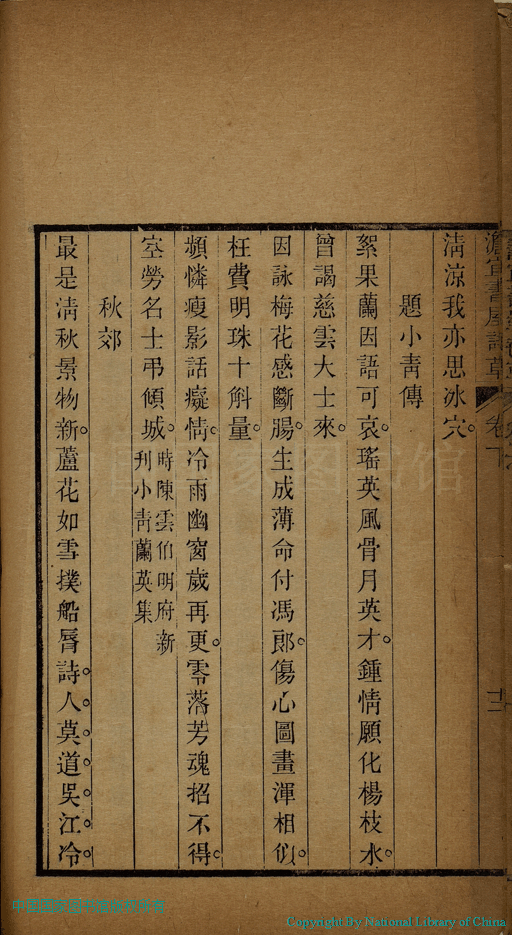 清涼我亦思冰穴。
題小青傳
絮果蘭因語可哀。瑤英風骨月英才。鍾情願化楊枝水。
曾謁慈雲大士來。
因詠梅花感斷腸。生成薄命付馮郎。傷心圖畫渾相似。
枉費明珠十斛量。
頻憐瘦影話癡情。冷雨幽窗歲再更。零落芳魂招不得。
空勞名士弔傾城。時陳雲伯明府新
刊小青蘭英集
秋郊
最是清秋景物新。蘆花如雪撲船脣。詩人莫道吳江冷。
Copyright by National Library of China